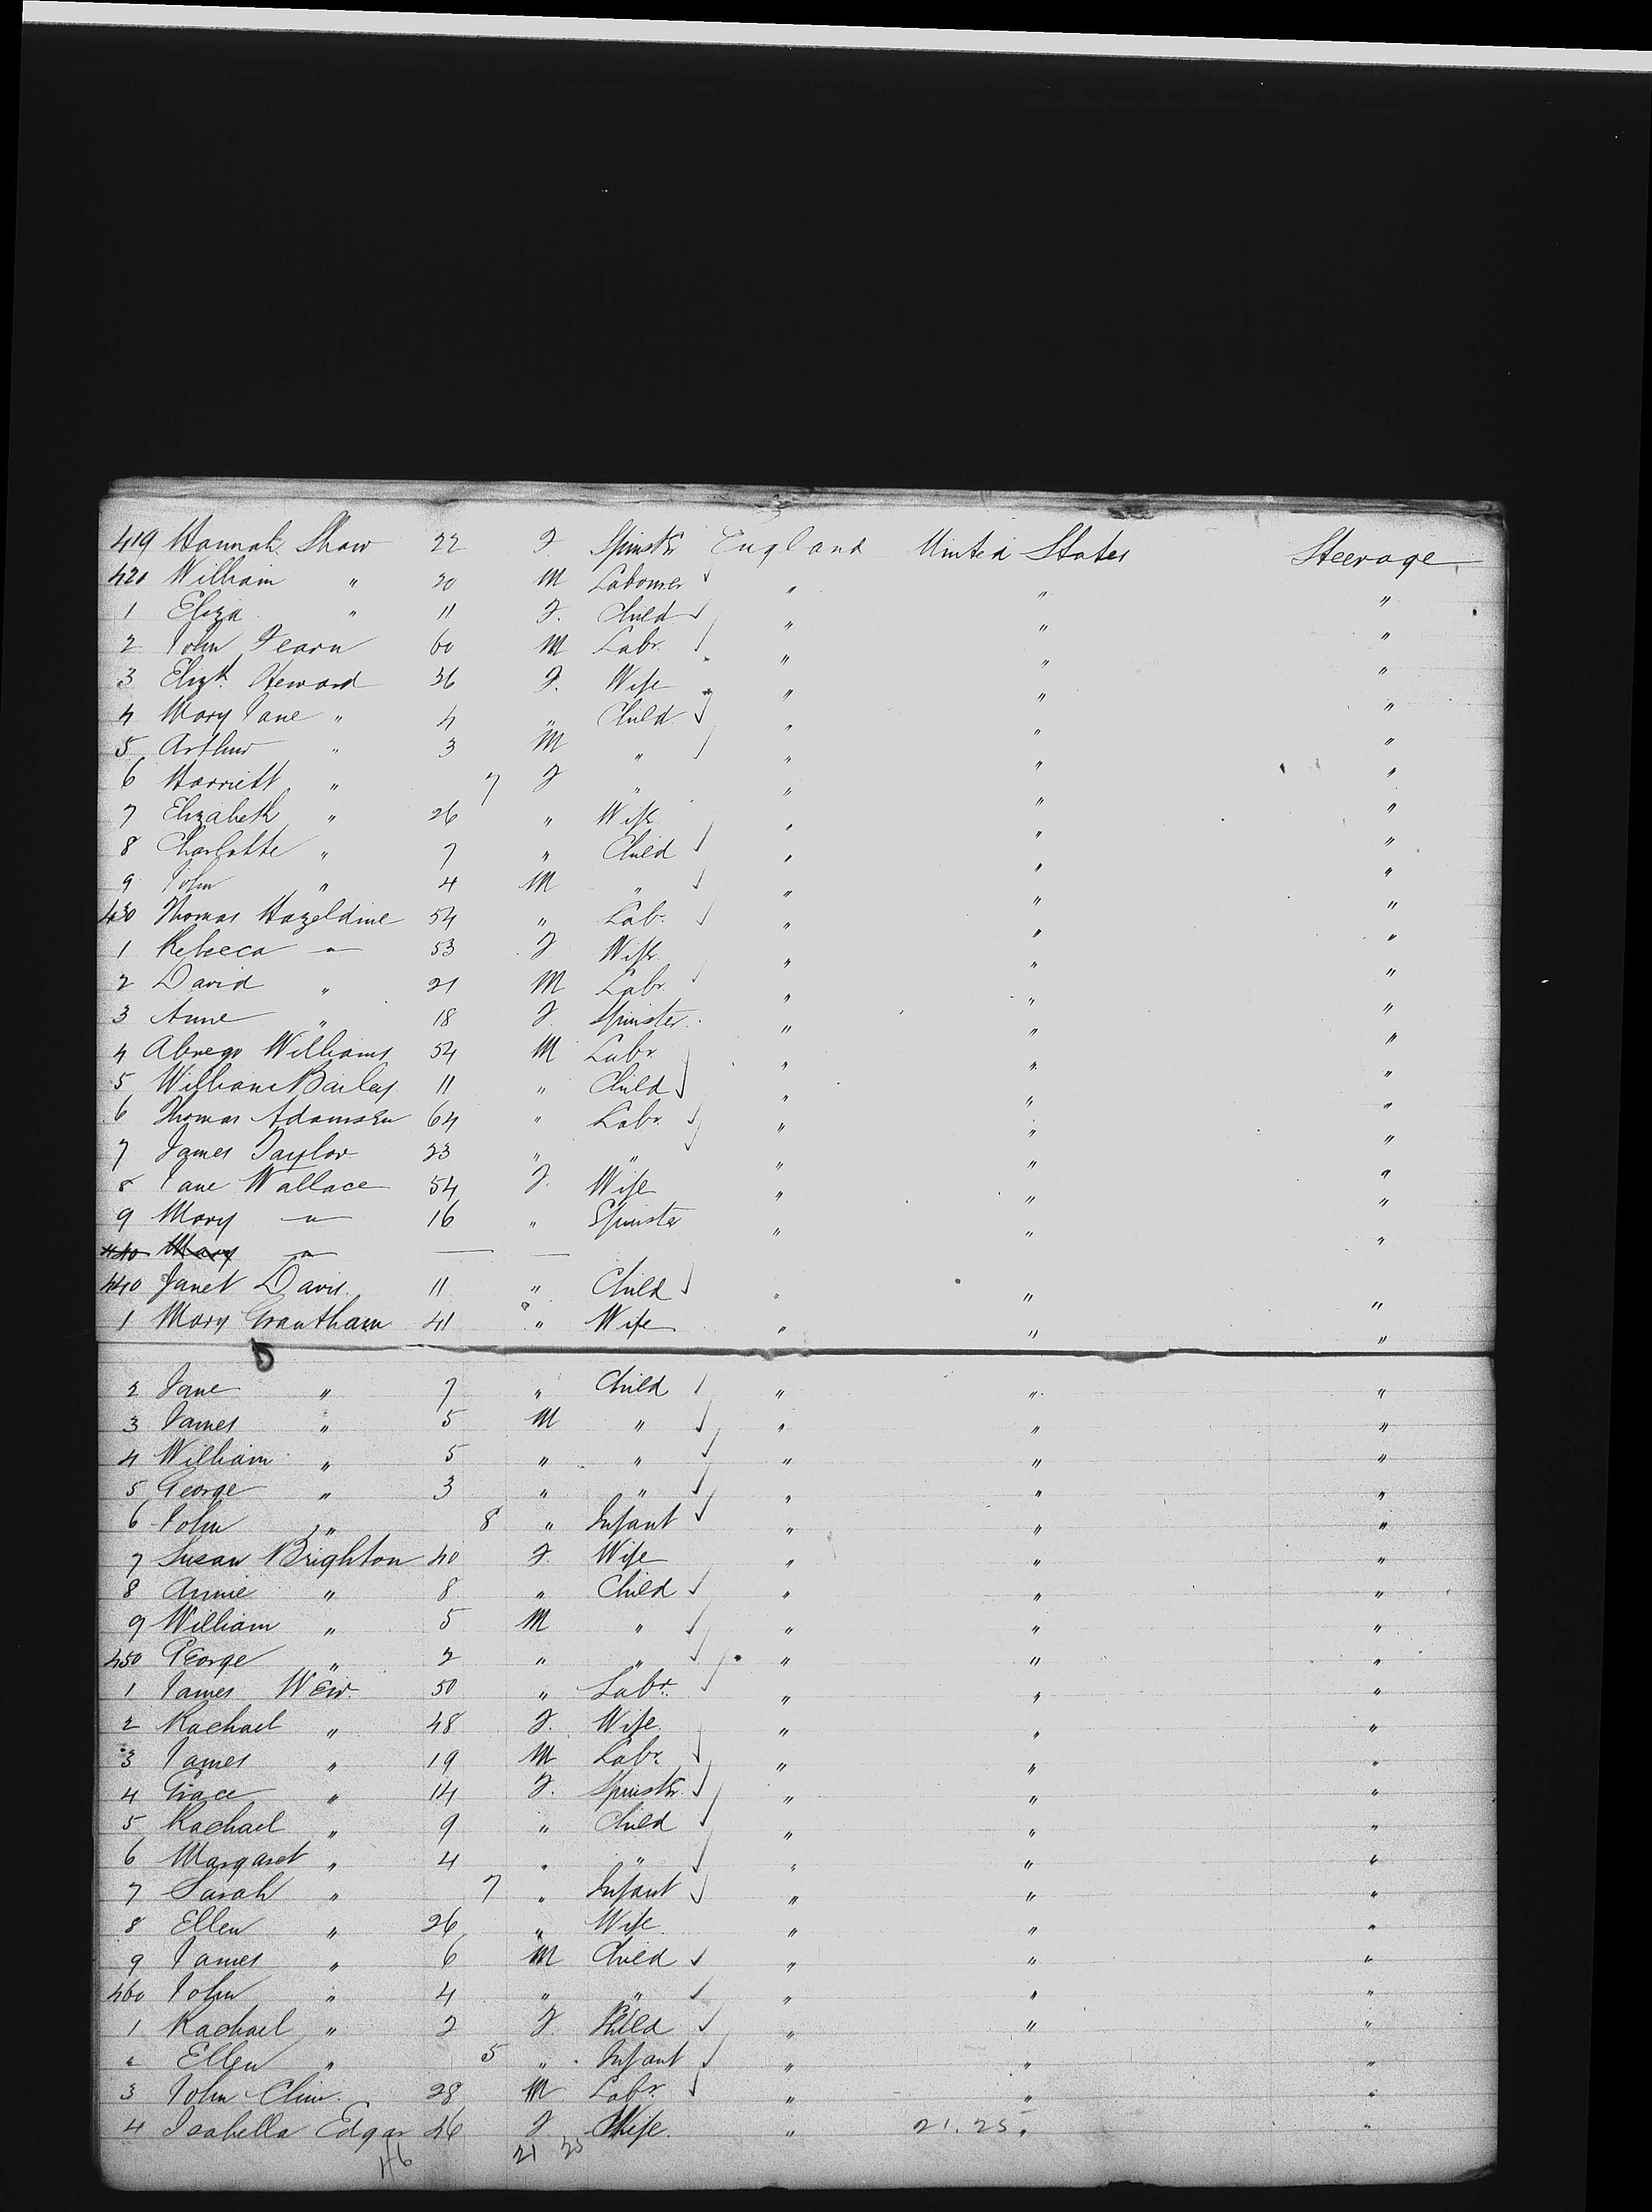 419 Hannah Shaw 22 F. Spinstr England United States Steerage
420 William " 20 M Labourer " " "
1 Eliza " 11 F. Child " " "
2 John Fearn 60 M Labr. " " "
3 Elizth. Steward 36 F. Wife " " "
4 Mary Jane " 4 " Child " " "
5 Arthur " 3 M " " " "
6 Harriett " 7 F " " " "
7 Elizabeth " 26 " Wife " " "
8 Charlotte " 7 " Child " " "
9 John " 4 M " " " "
430 Thomas Hazeldine 54 " Lab. " " "
1 Rebecca " 53 F Wife " " "
2 David " 21 M Labr " " "
3 Anne " 18 F Spinster " " "
4 Abnego Williams 54 M Labr " " "
5 William Bailey 11 " Child " " "
6 Thomas Adamson 64 " Labr " " "
7 James Taylor 23 " " " " "
8 Jane Wallace 54 F. Wife " " "
9 Mary " 16 " Spinster " " "
440 Mary "
440 Janet Davis 11 " Child " " "
1 Mary Grantham 41 " Wife " " "
2 Jane " 7 " Child " " "
3 James " 5 M " " " "
4 William " 5 " " " " "
5 George " 3 " " " " "
6 John " 8 " Infant " " "
7 Susan Brighton 40 F. Wife " " "
8 Annie " 8 " Child " " "
9 William " 5 M " " " "
450 George " 2 " " " " "
1 James Weir 50 " Labr. " " "
2 Rachael " 48 F. Wife " " "
3 James " 19 M Labr. " " "
4 Grace " 14 F. Spinstr. " " "
5 Rachael " 9 " Child " " "
6 Margaret " 4 " " " " "
7 Sarah " 7 " Infant " " "
8 Ellen " 26 " Wife " " "
9 James " 6 M Child " " "
460 John " 4 " " " " "
1 Rachael " 2 F. Child " " "
2 Ellen " 5 " Infant " " "
3 John Clim 28 M Labr. " " "
4 Isabella Edgar 46 F Wife. " 21.25. "
46 21 25